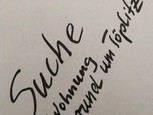 Suche
Wohnung
rund um Töplitz